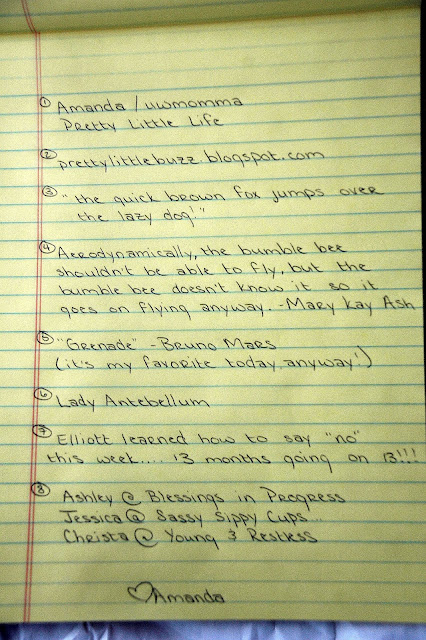 ① Amanda / uwmomma
Pretty Little Life
② prettylittlebuzz.blogspot.com
③ "the quick brown fox jumps over
the lazy dog!"
④ Aerodynamically, the bumble bee
shouldn't be able to fly, but the
bumble bee doesn't know it so it
goes on flying anyway. -Mary Kay Ash
⑤ "Grenade" -Bruno Mars
(it's my favorite today, anyway!)
⑥ Lady Antebellum
⑦ Elliott learned how to say "no"
this week.... 13 months going on 13!!!
⑧ Ashley @ Blessings in Progress
Jessica @ Sassy Sippy Cups...
Christa @ Young & Restless
♡Amanda